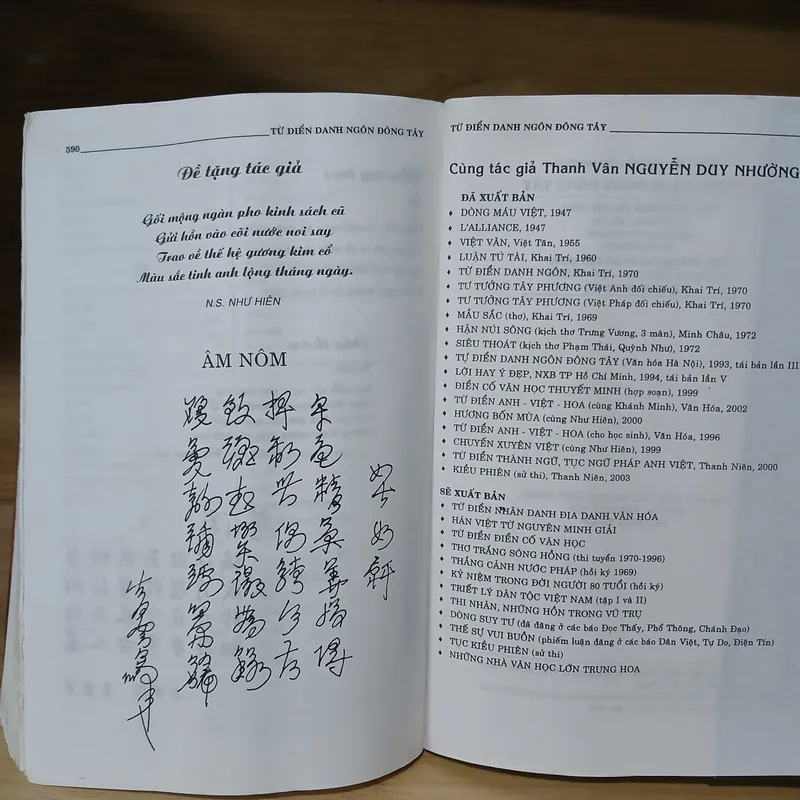 590 TỪ ĐIỂN DANH NGÔN ĐÔNG TÂY
Đề tặng tác giả
Gối mộng ngàn pho kinh sách cũ
Gửi hồn vào cõi nước non say
Trao về thế hệ gương kim cổ
Màu sắc tinh anh lộng tháng ngày.
N.S. NHƯ HIÊN
ÂM NÔM
TỪ ĐIỂN DANH NGÔN ĐÔNG TÂY
Cùng tác giả Thanh Vân NGUYỄN DUY NHƯỜNG
ĐÃ XUẤT BẢN
♦ DÒNG MÁU VIỆT, 1947
♦ L'ALLIANCE, 1947
♦ VIỆT VĂN, Việt Tân, 1955
♦ LUẬN TÚ TÀI, Khai Trí, 1960
♦ TỪ ĐIỂN DANH NGÔN, Khai Trí, 1970
♦ TƯ TƯỞNG TÂY PHƯƠNG (Việt Anh đối chiếu), Khai Trí, 1970
♦ TƯ TƯỞNG TÂY PHƯƠNG (Việt Pháp đối chiếu), Khai Trí, 1970
♦ MẦU SẮC (thơ), Khai Trí, 1969
♦ HẬN NÚI SÔNG (kịch thơ Trưng Vương, 3 màn), Minh Châu, 1972
♦ SIÊU THOÁT (kịch thơ Phạm Thái, Quỳnh Như), 1972
♦ TỰ ĐIỂN DANH NGÔN ĐÔNG TÂY (Văn hóa Hà Nội), 1993, tái bản lần III
♦ LỜI HAY Ý ĐẸP, NXB TP Hồ Chí Minh, 1994, tái bản lần V
♦ ĐIỂN CỐ VĂN HỌC THUYẾT MINH (hợp soạn), 1999
♦ TỪ ĐIỂN ANH - VIỆT - HOA (cùng Khánh Minh), Văn Hóa, 2002
♦ HƯƠNG BỐN MÙA (cùng Như Hiên), 2000
♦ TỪ ĐIỂN ANH - VIỆT - HOA (cho học sinh), Văn Hóa, 1996
♦ CHUYẾN XUYÊN VIỆT (cùng Như Hiên), 1999
♦ TỪ ĐIỂN THÀNH NGỮ, TỤC NGỮ PHÁP ANH VIỆT, Thanh Niên, 2000
♦ KIỀU PHIÊN (sử thi), Thanh Niên, 2003
SẼ XUẤT BẢN
♦ TỪ ĐIỂN NHÂN DANH ĐỊA DANH VĂN HÓA
♦ HÁN VIỆT TỪ NGUYÊN MINH GIẢI
♦ TỪ ĐIỂN ĐIỂN CỐ VĂN HỌC
♦ THƠ TRẮNG SÓNG HỒNG (thi tuyển 1970-1996)
♦ THẮNG CẢNH NƯỚC PHÁP (hồi ký 1969)
♦ KỶ NIỆM TRONG ĐỜI NGƯỜI 80 TUỔI (hồi ký)
♦ TRIẾT LÝ DÂN TỘC VIỆT NAM (tập I và II)
♦ THI NHÂN, NHỮNG HỒN TRONG VŨ TRỤ
♦ DÒNG SUY TƯ (đã đăng ở các báo Đọc Thấy, Phổ Thông, Chánh Đạo)
♦ THẾ SỰ VUI BUỒN (phiếm luận đăng ở các báo Dân Việt, Tự Do, Điện Tín)
♦ TỤC KIỀU PHIÊN (sử thi)
♦ NHỮNG NHÀ VĂN HỌC LỚN TRUNG HOA